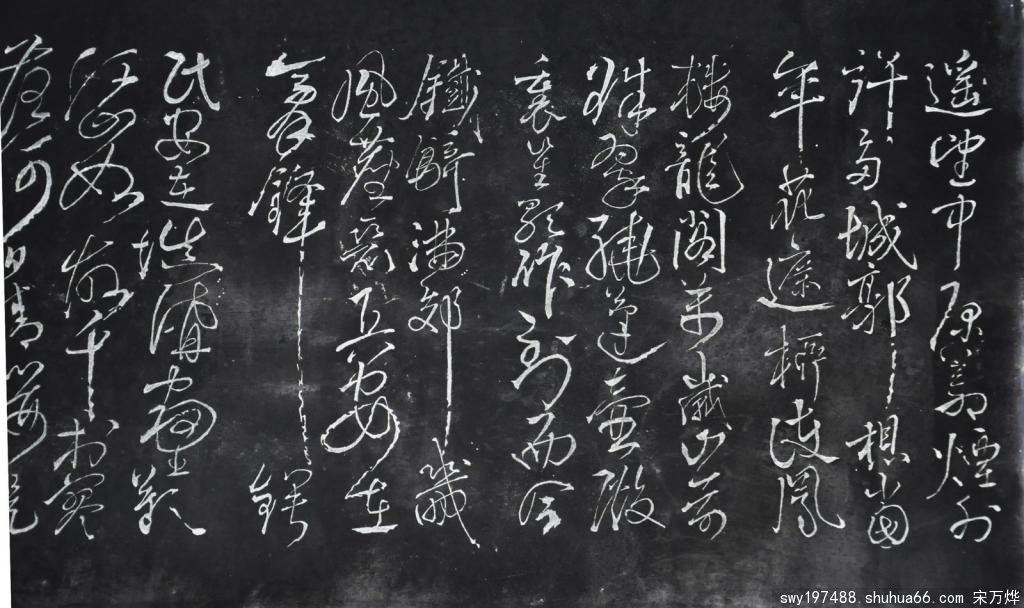 遥望中原荒煙外
許多城郭想當
年花遮柳護鳳
楼龍閣万歲山前
珠翠繞蓬壺殿
裏笙歌作到而今
鐵騎滿郊畿
風塵惡兵安在
膏鋒鍔
民安在填溝壑歎
江山如故千村寥
落何日請纓提
swy197488.shuhua66.com 宋万烨